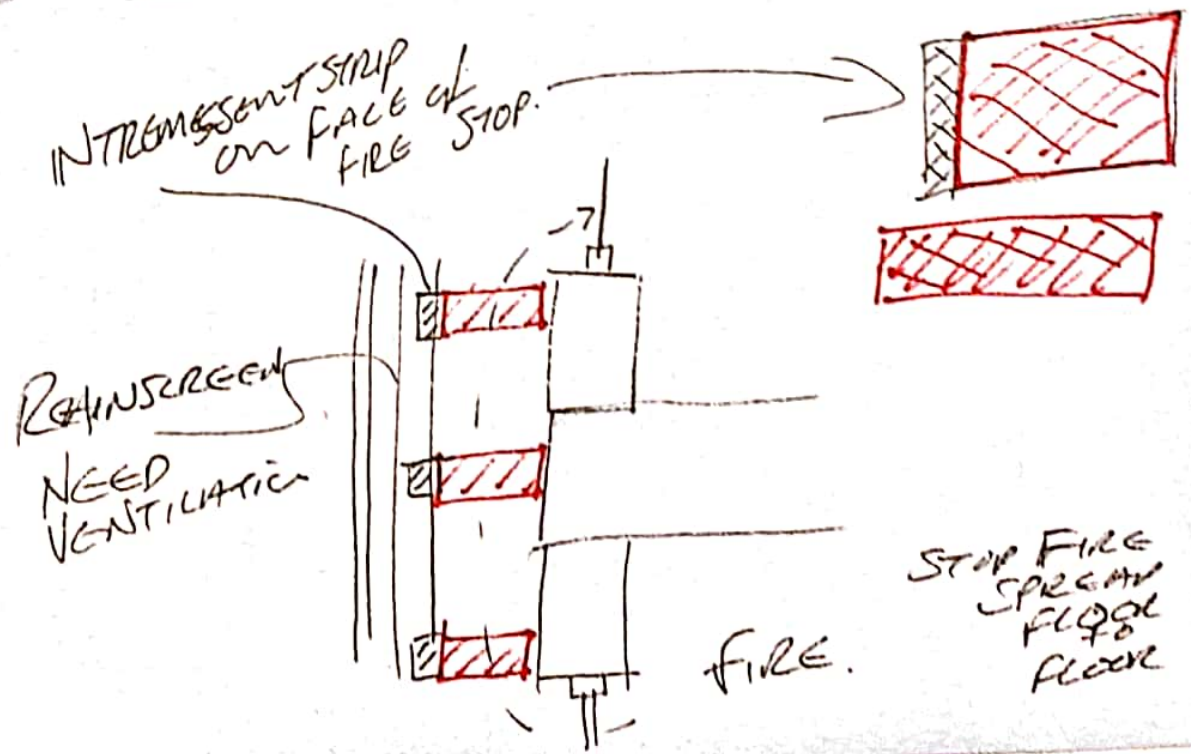 INTREMESSENT STRIP
ON FACE of
FIRE STOP.
RAINSCREEN
NEED
VENTILATION
FIRE.
STOP FIRE
SPREAD
FLOOR
TO
FLOOR